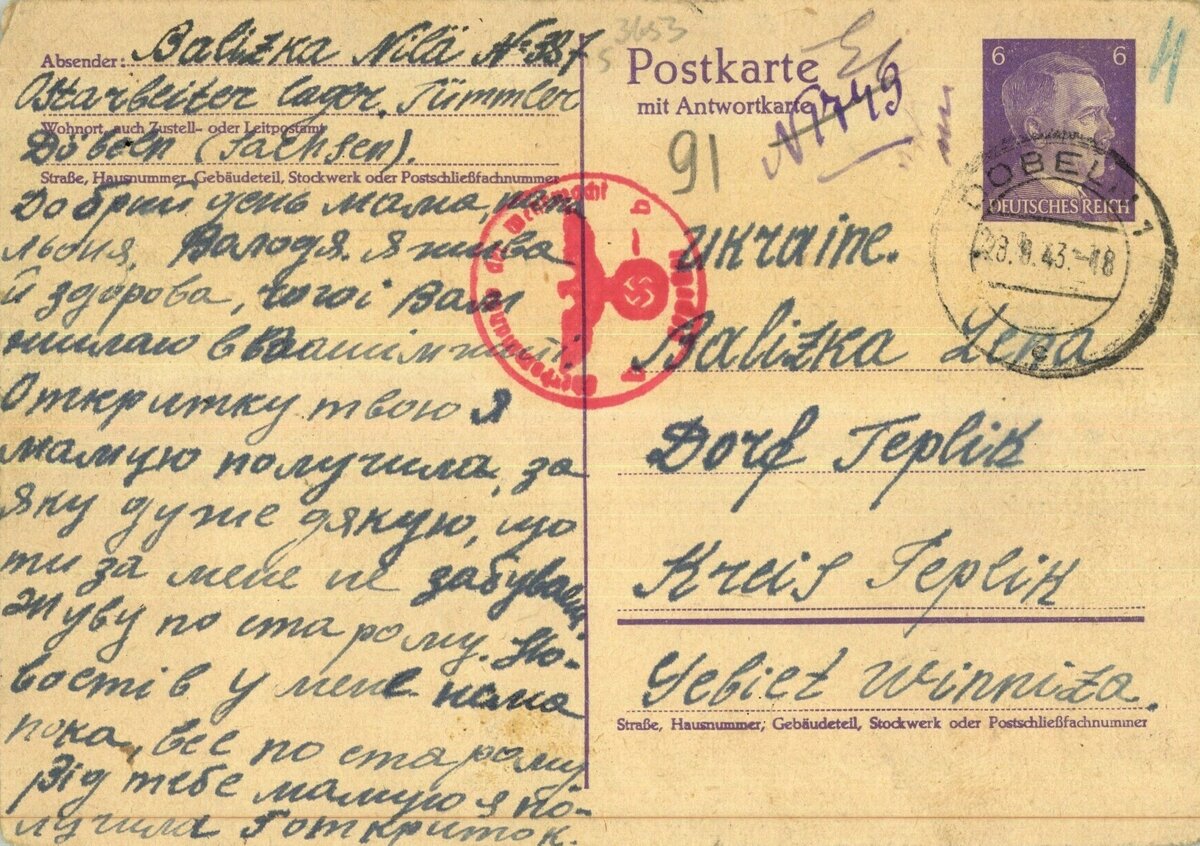 Absender: Balizka Nilä № 387
Ostarbeiter lager. Tümmler
Wohnort, auch Zustell- oder Leitpostamt
Döbeln (Sachsen).
Straße, Hausnummer, Gebäudeteil, Stockwerk oder Postschließfachnummer
Добрий день мама, ната
льоня, Валодя. Я жива
й здорова, чого і Вам
жилаю в Вашім житті.
Откритку твою я
мамую получила, за
яку дуже дякую, що
ти за мене не забуваєш.
Жуву по старому. Но-
востів у мене нама
пока, все по старому
Від тебе мамую я по-
лучила 7 откриток.
3653
S
Postkarte
mit Antwortkarte
N1749
91
6 6
DEUTSCHES REICH
DÖBELN 1
43.-18
c
der Wehrmacht
b
Ukraine.
Balizka Lena
Dorf Teplik
Kreis Teplik
Gebiet Winniza.
Straße, Hausnummer, Gebäudeteil, Stockwerk oder Postschließfachnummer